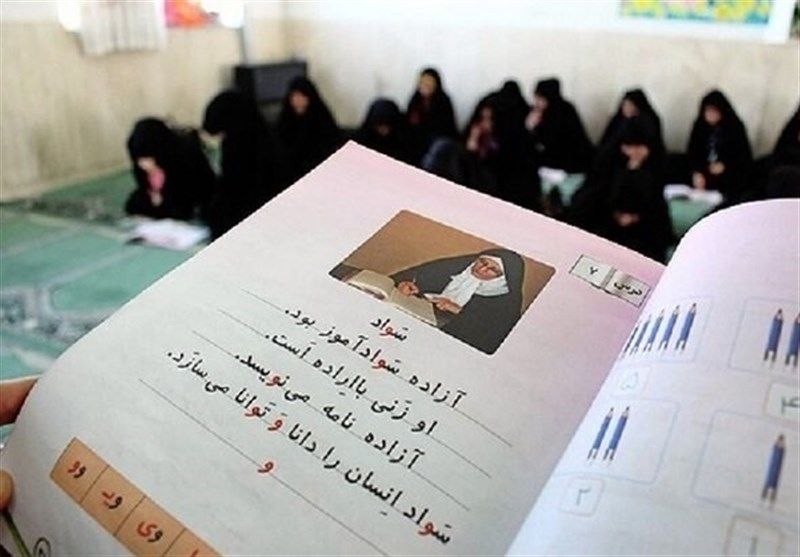 درس ۷
سَواد
آزاده سَوادآموز بود.
او زَنی بااِراده اَست.
آزاده نامه می‌نویسد.
سَواد اِنسان را دانا وَ تَوانا می‌سازَد.
و
و وی ویـ وو
۵
۴
۲